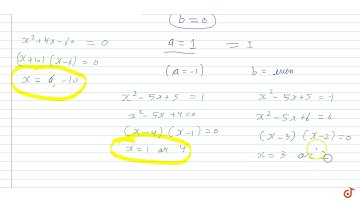 (b = 0)
x² + 4x - 60 = 0
a = 1 = 1
(x+10) (x-6) = 0
x = 6, -10
(a = -1) b = even
x² - 5x + 5 = 1 x² - 5x + 5 = -1
x² - 5x + 4 = 0 x² - 5x + 6 = 0
(x-4) (x-1) = 0 (x-3) (x-2) = 0
x = 1 or 4 x = 3 or 2